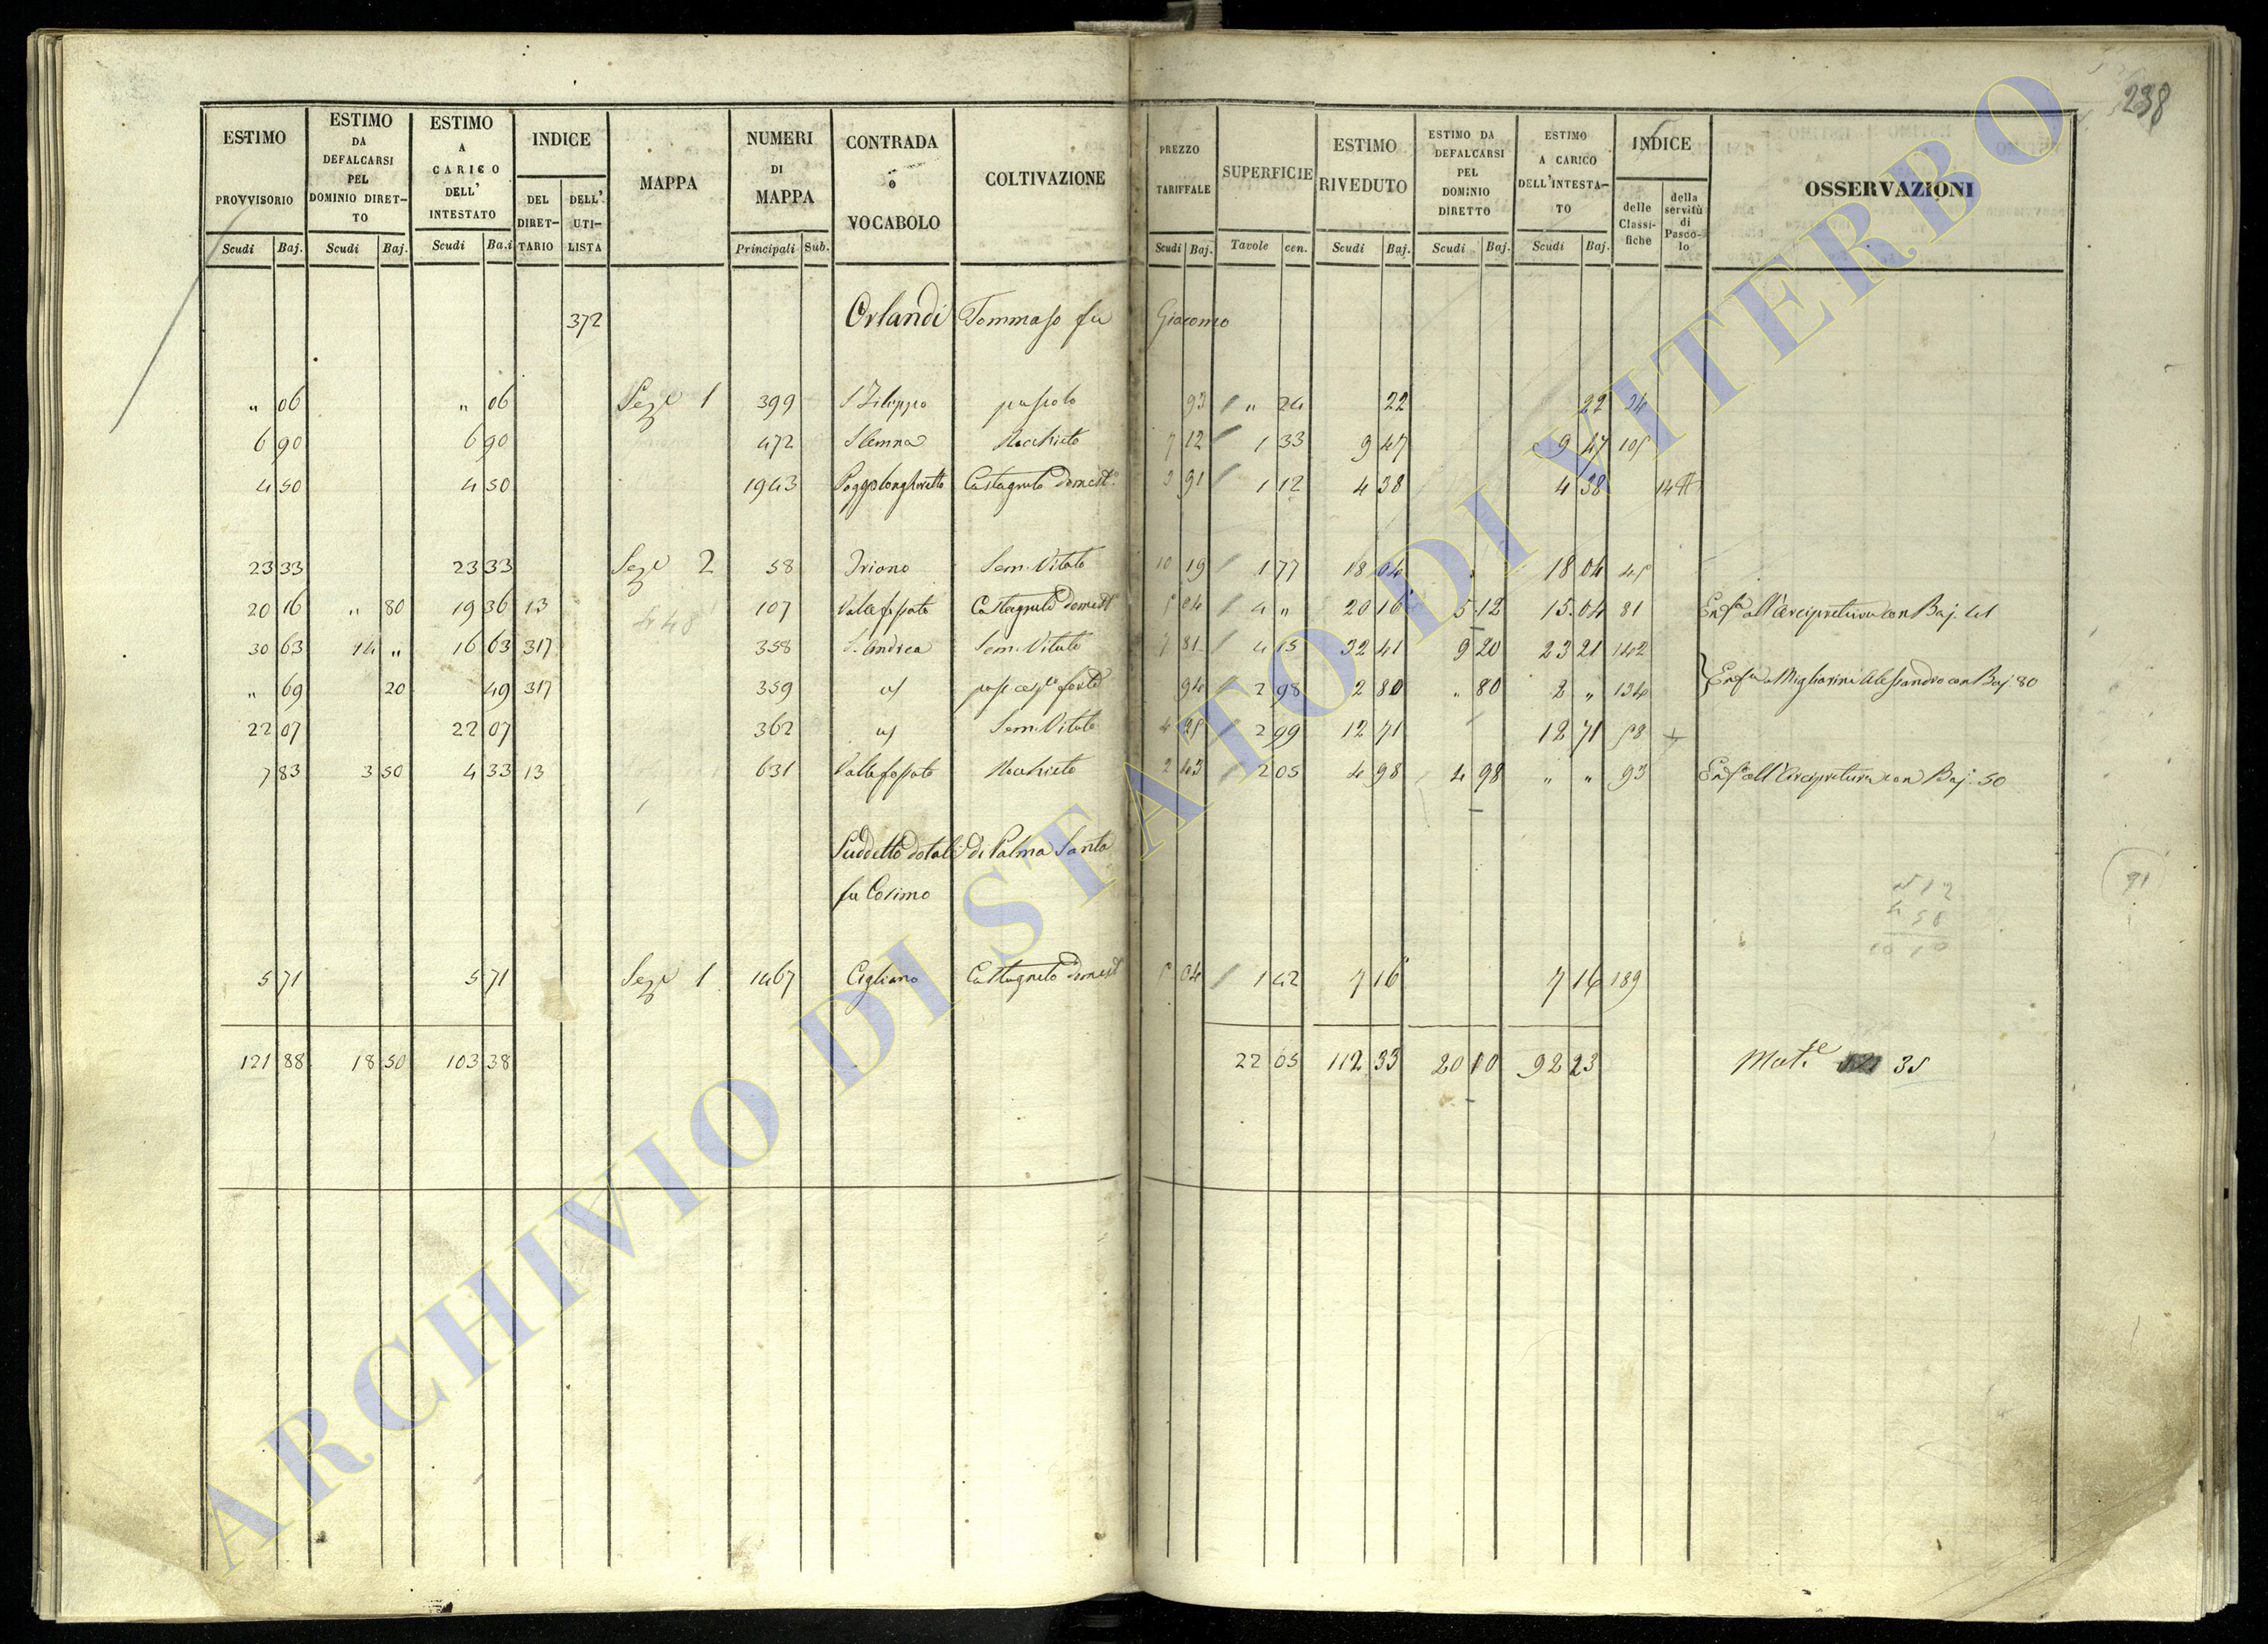 238
ESTIMO PROVVISORIO Scudi Baj. | ESTIMO DA DEFALCARSI PEL DOMINIO DIRET-TO Scudi Baj. | ESTIMO A CARICO DELL' INTESTATO Scudi Ba.i | INDICE DEL DIRET-TARIO | DELL' UTI-LISTA | MAPPA | NUMERI DI MAPPA Principali Sub. | CONTRADA o VOCABOLO | COLTIVAZIONE | PREZZO TARIFFALE Scudi Baj. | SUPERFICIE Tavole cen. | ESTIMO RIVEDUTO Scudi Baj. | ESTIMO DA DEFALCARSI PEL DOMINIO DIRETTO Scudi Baj. | ESTIMO A CARICO DELL'INTESTA-TO Scudi Baj. | INDICE delle Classi-fiche | della servitù di Pasco-lo | OSSERVAZIONI
372 Orlandi Tommaso fu Giacomo
" 06 " 06 Sez.e 1 399 S Filippo pascolo 93 " 24 22 22 24
6 90 6 90 472 Nocchieto 7 12 1 33 9 47 9 47 105
4 50 4 50 1943 Poggiolonghretto Castagneto domest.o 3 91 1 12 4 38 4 38 14
23 33 23 33 Sez.e 2 58 Iriano Sem. Vitato 10 19 1 77 18 04 18 04 45
20 16 " 80 19 36 13 107 Vallefossato Castagneto domest 5 04 4 " 20 16 5 12 15.04 81 Enf.a all'Arcipretura con Baj. 41
30 63 14 " 16 63 317 358 S. Andrea Sem. Vitato 7 81 4 15 32 41 9 20 23 21 142
" 69 20 49 317 359 94 2 98 2 80 " 80 2 " 134 Enf.a a Migliorini Alessandro con Baj. 80
22 07 22 07 362 Sem. Vitato 4 25 2 99 12 71 12 71 58 +
7 83 3 50 4 33 13 631 Vallefossato Nocchieto 2 43 2 05 4 98 4 98 " " 93 Enf.a all'Arcipretura con Baj. 50
Suddetto dotali di Palma Santa
fu Cosimo
91
5 12
4 98
10 10
5 71 5 71 Sez.e 1 1467 Cigliano Castagneto domest 5 04 1 42 7 16 7 16 189
121 88 18 50 103 38 22 05 112 33 20 10 92 23 Mat.e 35
ARCHIVIO DI STATO DI VITERBO